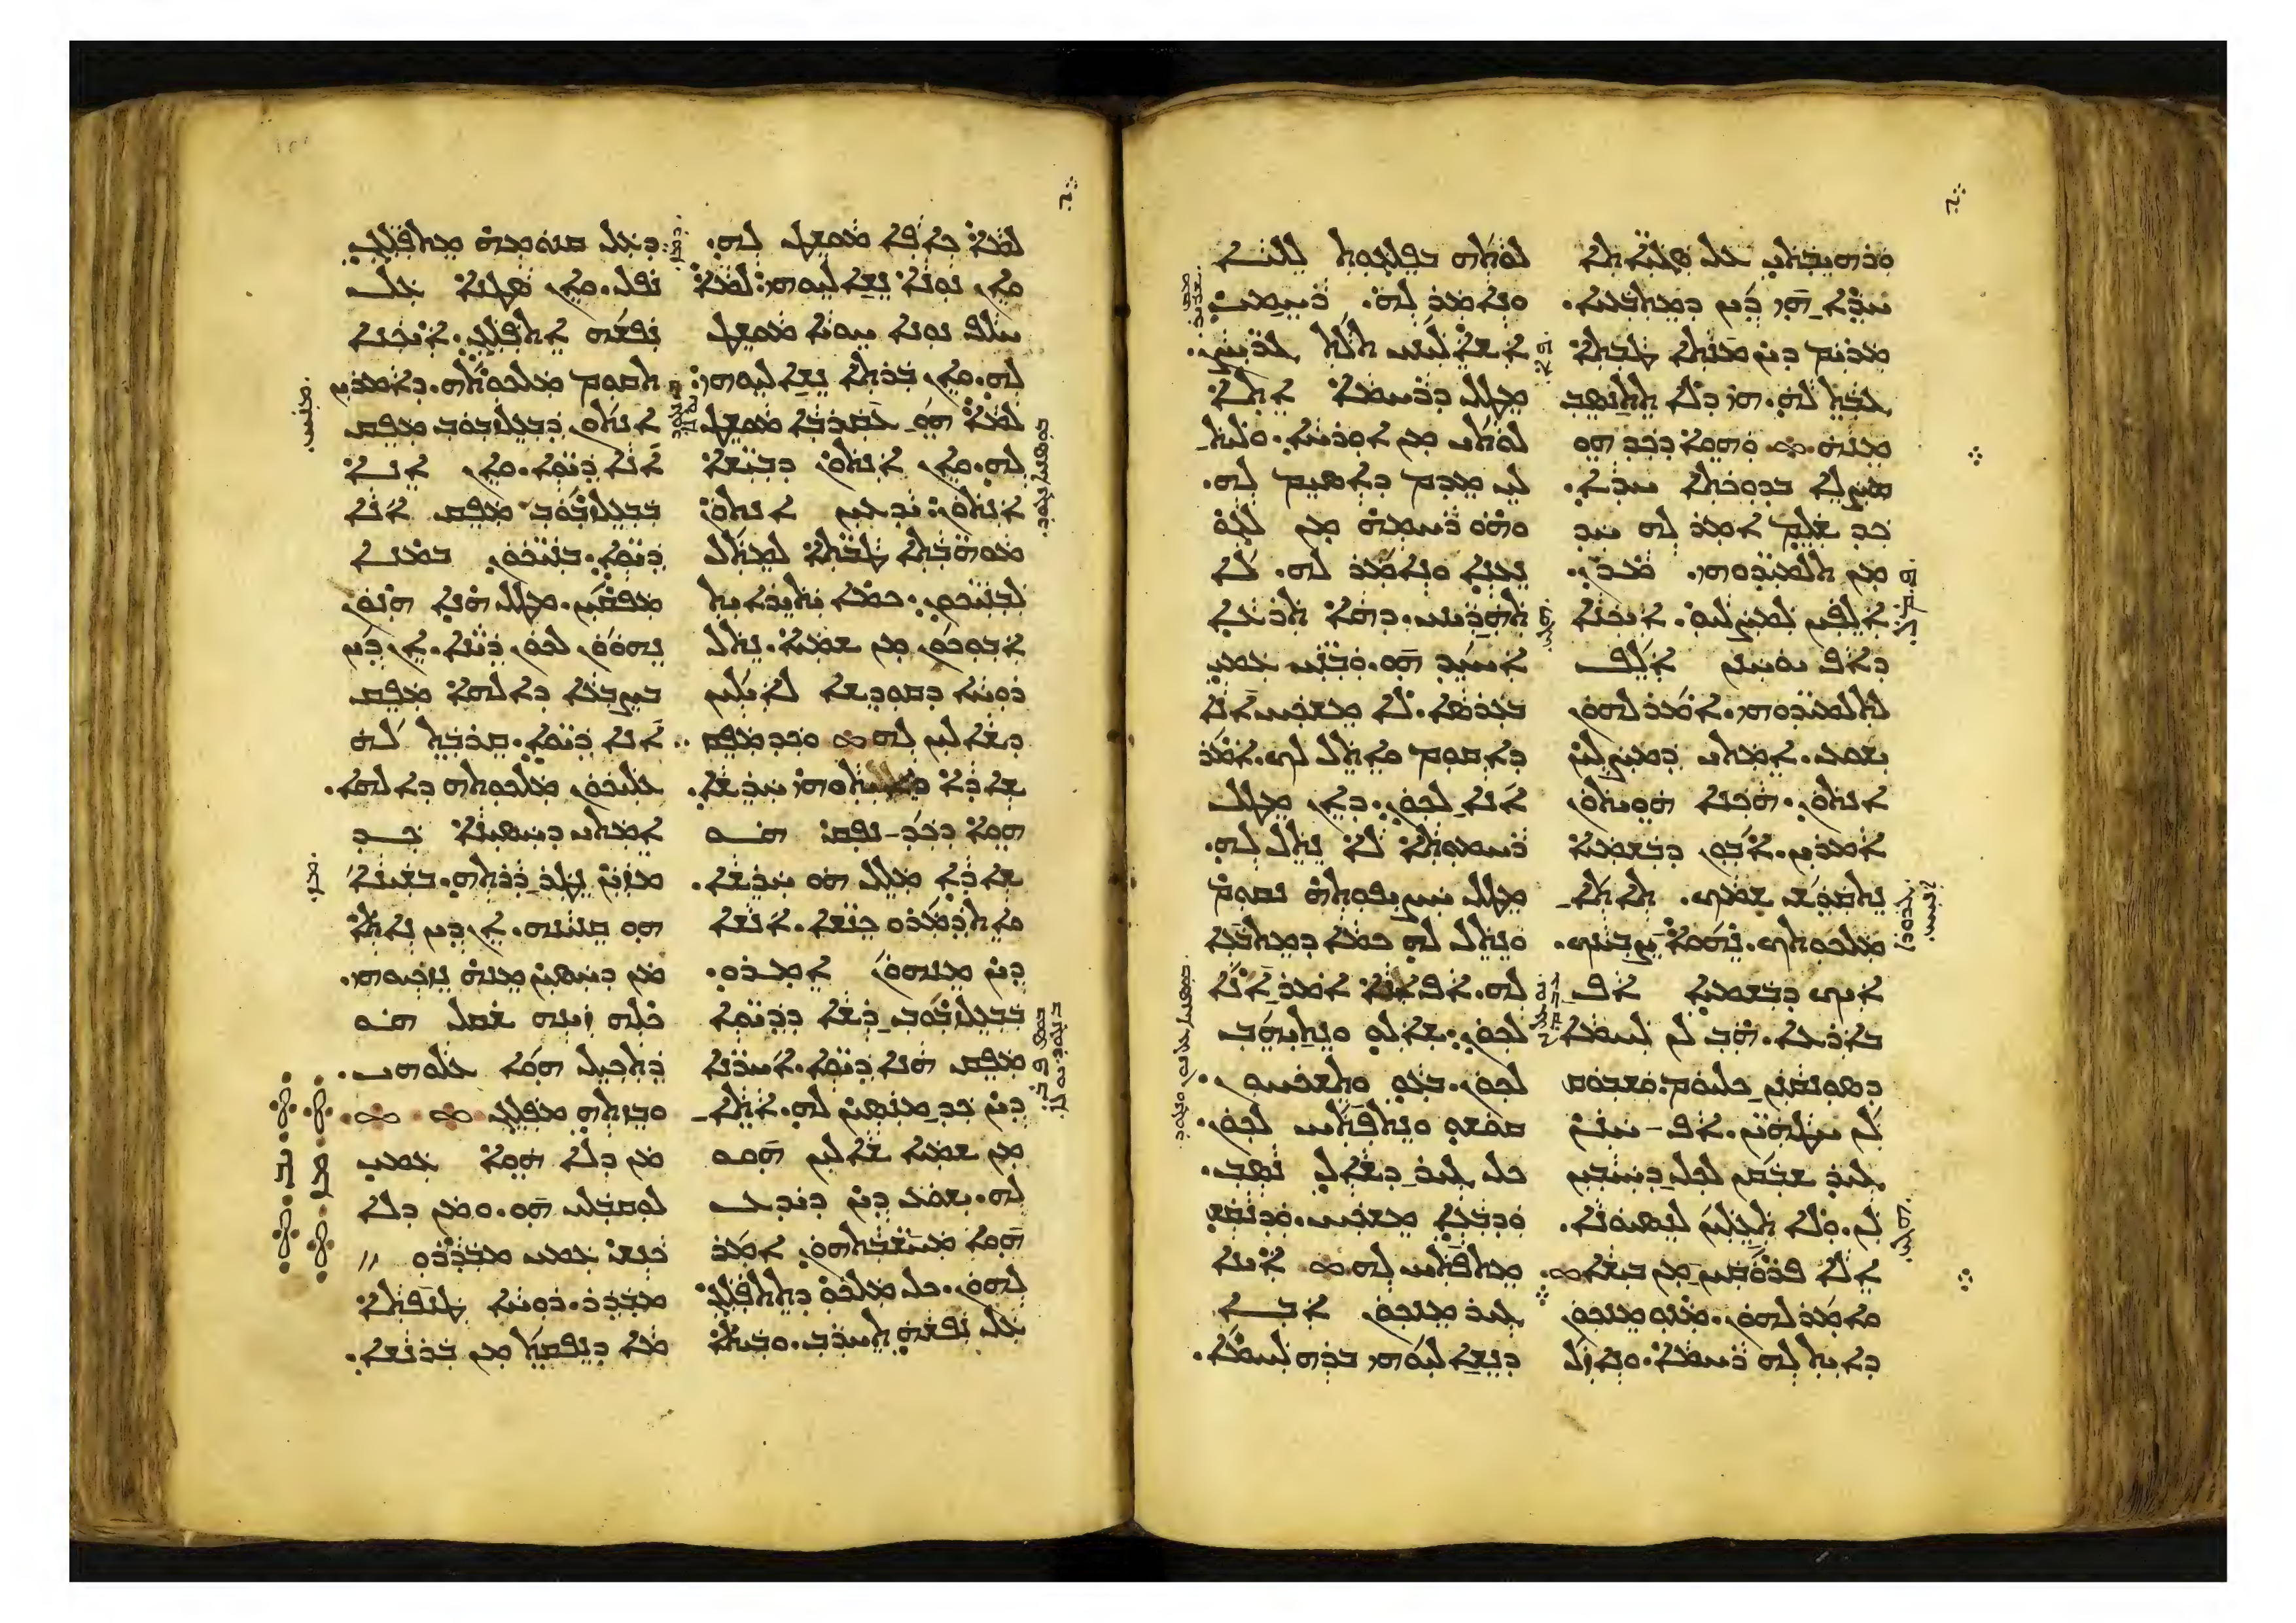 ܘܪܗܝܒܬܝ ܥܠ ܣܓܝܐܬܐ
ܚܕܐ ܗܝ ܕܝܢ ܕܡܬܒܥܝܐ.
ܡܪܝܡ ܕܝܢ ܡܢܬܐ ܛܒܬܐ
ܓܒܬ ܠܗ. ܗܝ ܕܠܐ ܬܬܢܣܒ
ܡܢܗ ܘܗܘܐ ܕܟܕ ܗܘ
ܡܨܠܐ ܒܕܘܟܬܐ ܚܕܐ.
ܟܕ ܫܠܡ ܐܡܪ ܠܗ ܚܕ
ܡܢ ܬܠܡܝܕܘܗܝ. ܡܪܢ.
ܐܠܦܝܢ ܠܡܨܠܝܘ. ܐܝܟܢܐ
ܕܐܦ ܝܘܚܢܢ ܐܠܦ
ܠܬܠܡܝܕܘܗܝ. ܐܡܪ ܠܗܘܢ
ܝܫܘܥ. ܐܡܬܝ ܕܡܨܠܝܢ
ܐܢܬܘܢ. ܗܟܢܐ ܗܘܝܬܘܢ
ܐܡܪܝܢ. ܐܒܘܢ ܕܒܫܡܝܐ
ܢܬܩܕܫ ܫܡܟ. ܬܐܬܐ
ܡܠܟܘܬܟ. ܢܗܘܐ ܨܒܝܢܟ.
ܐܝܟ ܕܒܫܡܝܐ ܐܦ
ܒܐܪܥܐ. ܗܒ ܠܢ ܠܚܡܐ
ܕܣܘܢܩܢܢ ܟܠܝܘܡ. ܘܫܒܘܩ
ܠܢ ܚܛܗܝܢ. ܐܦ ܚܢܢ
ܓܝܪ ܫܒܩܢ ܠܟܠ ܕܚܝܒܝܢ
ܠܢ. ܘܠܐ ܬܥܠܢ ܠܢܣܝܘܢܐ.
ܐܠܐ ܦܪܘܩܝܢ ܡܢ ܒܝܫܐ
ܘܐܡܪ ܠܗܘܢ. ܡܢܘ ܡܢܟܘܢ
ܕܐܝܬ ܠܗ ܪܚܡܐ. ܘܢܐܙܠ
ܠܘܬܗ ܒܦܠܓܘܬ ܠܠܝܐ
ܘܢܐܡܪ ܠܗ. ܪܚܡܝ
ܐܫܐܠܝܢܝ ܬܠܬ ܓܪܝܨܢ.
ܡܛܠ ܕܪܚܡܐ ܐܬܐ
ܠܘܬܝ ܡܢ ܐܘܪܚܐ. ܘܠܝܬ
ܠܝ ܡܕܡ ܕܐܣܝܡ ܠܗ.
ܘܗܘ ܪܚܡܗ ܡܢ ܠܓܘ
ܢܥܢܐ ܘܢܐܡܪ ܠܗ. ܠܐ
ܬܗܪܝܢܝ. ܕܗܐ ܬܪܥܐ
ܐܚܝܕ ܗܘ. ܘܒܢܝ ܥܡܝ
ܒܥܪܣܐ. ܠܐ ܡܫܟܚ ܐܢܐ
ܕܐܩܘܡ ܘܐܬܠ ܠܟ. ܐܡܪ
ܐܢܐ ܠܟܘܢ. ܕܐܢ ܡܛܠ
ܪܚܡܘܬܐ ܠܐ ܢܬܠ ܠܗ.
ܡܛܠ ܚܨܝܦܘܬܗ ܢܩܘܡ
ܘܢܬܠ ܠܗ ܟܡܐ ܕܡܬܒܥܐ
ܠܗ. ܐܦ ܐܢܐ ܐܡܪ ܐܢܐ
ܠܟܘܢ. ܫܐܠܘ ܘܢܬܝܗܒ
ܠܟܘܢ. ܒܥܘ ܘܬܫܟܚܘܢ.
ܩܘܫܘ ܘܢܬܦܬܚ ܠܟܘܢ.
ܟܠ ܓܝܪ ܕܫܐܠ ܢܣܒ.
ܘܕܒܥܐ ܡܫܟܚ. ܘܕܢܩܫ
ܡܬܦܬܚ ܠܗ ܐܝܢܐ
ܓܝܪ ܡܢܟܘܢ ܐܒܐ
ܕܢܫܐܠܝܘܗܝ ܒܪܗ ܠܚܡܐ.
ܠܡܐ ܟܐܦܐ ܡܘܫܛ ܠܗ.
ܘܐܢ ܢܘܢܐ ܢܫܐܠܝܘܗܝ. ܠܡܐ
ܚܠܦ ܢܘܢܐ ܚܘܝܐ ܡܘܫܛ
ܠܗ. ܘܐܢ ܒܪܬܐ ܢܫܐܠܝܘܗܝ
ܠܡܐ ܗܘ ܥܩܪܒܐ ܡܘܫܛ
ܠܗ. ܘܐܢ ܐܢܬܘܢ ܕܒܝܫܐ
ܐܢܬܘܢ: ܝܕܥܝܢ ܐܢܬܘܢ
ܡܘܗܒܬܐ ܛܒܬܐ ܠܡܬܠ
ܠܒܢܝܟܘܢ. ܟܡܐ ܝܬܝܪܐܝܬ
ܐܒܘܟܘܢ ܡܢ ܫܡܝܐ. ܢܬܠ
ܪܘܚܐ ܕܩܘܕܫܐ ܠܐܝܠܝܢ
ܕܫܐܠܝܢ ܠܗ ܘܟܕ ܡܦܩ
ܫܐܕܐ ܚܪܫܐ.
ܗܘܐ ܕܟܕ ܢܦܩ ܗܘ
ܫܐܕܐ ܡܠܠ ܗܘ ܚܪܫܐ.
ܘܐܬܕܡܪܘ ܟܢܫܐ. ܐܢܫܐ
ܕܝܢ ܡܢܗܘܢ ܐܡܪܘ.
ܒܒܥܠܙܒܘܒ ܪܫܐ ܕܕܝܘܐ
ܡܦܩ ܗܢܐ ܕܝܘܐ. ܐܚܪܢܐ
ܕܝܢ ܟܕ ܡܢܣܝܢ ܠܗ. ܐܬܐ
ܡܢ ܫܡܝܐ ܫܐܠܝܢ ܗܘܘ
ܠܗ. ܝܫܘܥ ܕܝܢ ܕܝܕܥ
ܗܘܐ ܡܚܫܒܬܗܘܢ ܐܡܪ
ܠܗܘܢ. ܟܠ ܡܠܟܘ ܕܬܬܦܠܓ
ܥܠ ܢܦܫܗ ܬܚܪܒ. ܘܒܝܬܐ
ܕܥܠ ܩܢܘܡܗ ܡܬܦܠܓ
ܢܦܠ. ܘܐܢ ܣܛܢܐ ܥܠ
ܢܦܫܗ ܐܬܦܠܓ. ܐܝܟܢܐ
ܬܩܘܡ ܡܠܟܘܬܗ. ܕܐܡܪܝܢ
ܐܢܬܘܢ ܕܒܒܥܠܙܒܘܒ ܡܦܩ
ܐܢܐ ܕܝܘܐ. ܘܐܢ ܐܢܐ
ܒܒܥܠܙܒܘܒ ܡܦܩ ܐܢܐ
ܕܝܘܐ. ܒܢܝܟܘܢ ܒܡܢܐ
ܡܦܩܝܢ. ܡܛܠ ܗܢܐ ܗܢܘܢ
ܢܗܘܘܢ ܠܟܘܢ ܕܝܢܐ. ܐܢ ܕܝܢ
ܒܨܒܥܐ ܕܐܠܗܐ ܡܦܩ
ܐܢܐ ܕܝܘܐ. ܩܪܒܬ ܠܗ
ܥܠܝܟܘܢ ܡܠܟܘܬܗ ܕܐܠܗܐ.
ܐܡܬܝ ܕܚܣܝܢܐ ܟܕ
ܡܙܝܢ ܢܛܪ ܕܪܬܗ. ܒܫܝܢܐ
ܗܘ ܩܢܝܢܗ. ܐܢ ܕܝܢ ܢܐܬܐ
ܡܢ ܕܚܣܝܢ ܡܢܗ ܢܙܟܝܘܗܝ.
ܟܠܗ ܙܝܢܗ ܫܩܠ ܗܘ
ܕܬܟܝܠ ܗܘܐ ܥܠܘܗܝ.
ܘܒܙܬܗ ܡܦܠܓ
ܡܢ ܕܠܐ ܗܘܐ ܥܡܝ
ܠܘܩܒܠܝ ܗܘ. ܘܡܢ ܕܠܐ
ܟܢܫ ܥܡܝ ܡܒܕܪܘ
ܡܒܕܪ. ܪܘܚܐ ܛܢܦܬܐ
ܡܐ ܕܢܦܩܬ ܡܢ ܒܪܢܫܐ.